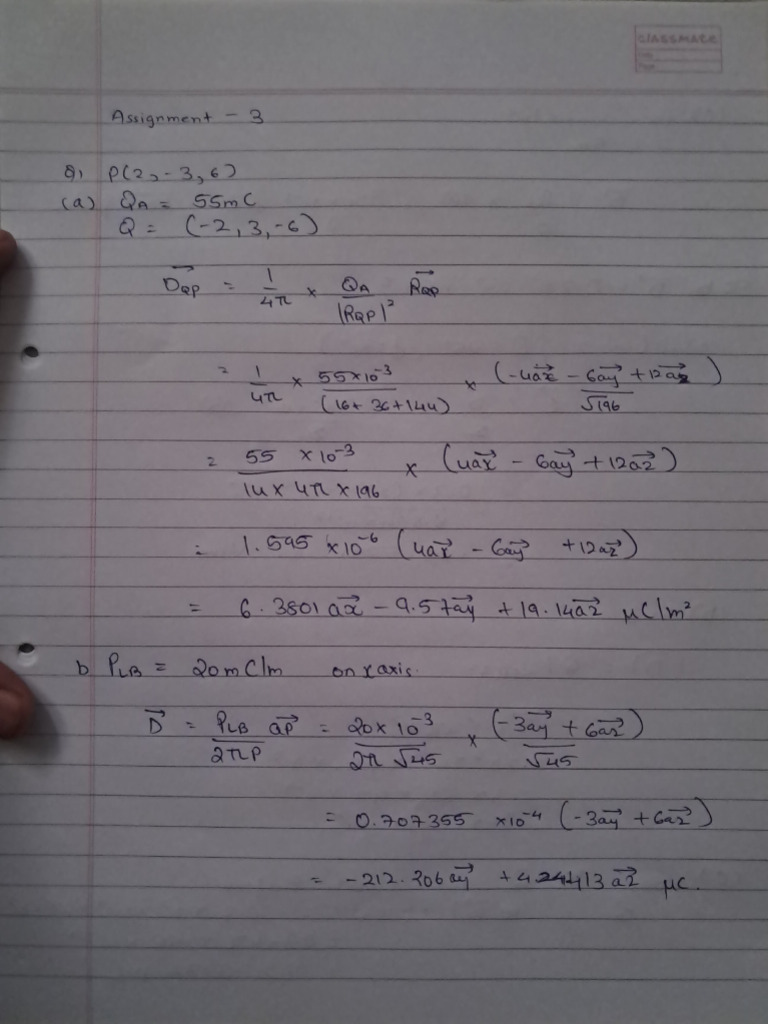 classmate
Date
Page
Assignment - 3
Q1 P(2, -3, 6)
(a) QA = 55mC
Q = (-2, 3, -6)
D⃗QP = 1/4π × QA/|RQP|² R⃗QP
= 1/4π × 55×10⁻³/(16+36+144) × (-4ax⃗ - 6ay⃗ + 12az⃗)/√196
= 55 ×10⁻³/14 × 4π × 196 × (4ax⃗ - 6ay⃗ + 12az⃗)
= 1.595 ×10⁻⁶ (4ax⃗ - 6ay⃗ + 12az⃗)
= 6.3801 ax⃗ - 9.57ay⃗ + 19.14az⃗ μC/m²
b ρLB = 20mC/m on x axis.
D⃗ = ρLB/2πρ aρ⃗ = 20×10⁻³/2π √45 × (-3ay⃗ + 6az⃗)/√45
= 0.707355 ×10⁻⁴ (-3ay⃗ + 6az⃗)
= -212.206 ay⃗ + 424.413 az⃗ μC.